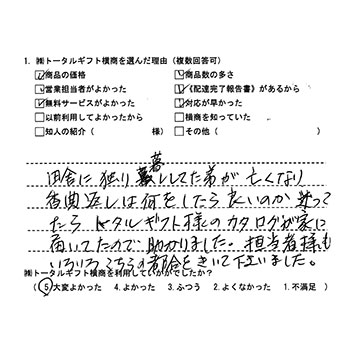 1. ㈱トータルギフト横商を選んだ理由（複数回答可）
☑商品の価格 ☑商品数の多さ
☐営業担当者がよかった ☑《配達完了報告書》があるから
☑無料サービスがよかった ☑対応が早かった
☐以前利用してよかったから ☐横商を知っていた
☐知人の紹介（ 様） ☐その他（ ）
田舎に独り暮ししてた弟が亡くなり
香典返しは何をしたら良いのか迷って
たら トータルギフト様のカタログが家に
届いてたので助かりました。担当者様も
いろいろこちらの都合をきいて下さいました。
㈱トータルギフト横商を利用していかがでしたか？
⑤大変よかった 4. よかった 3. ふつう 2. よくなかった 1. 不満足